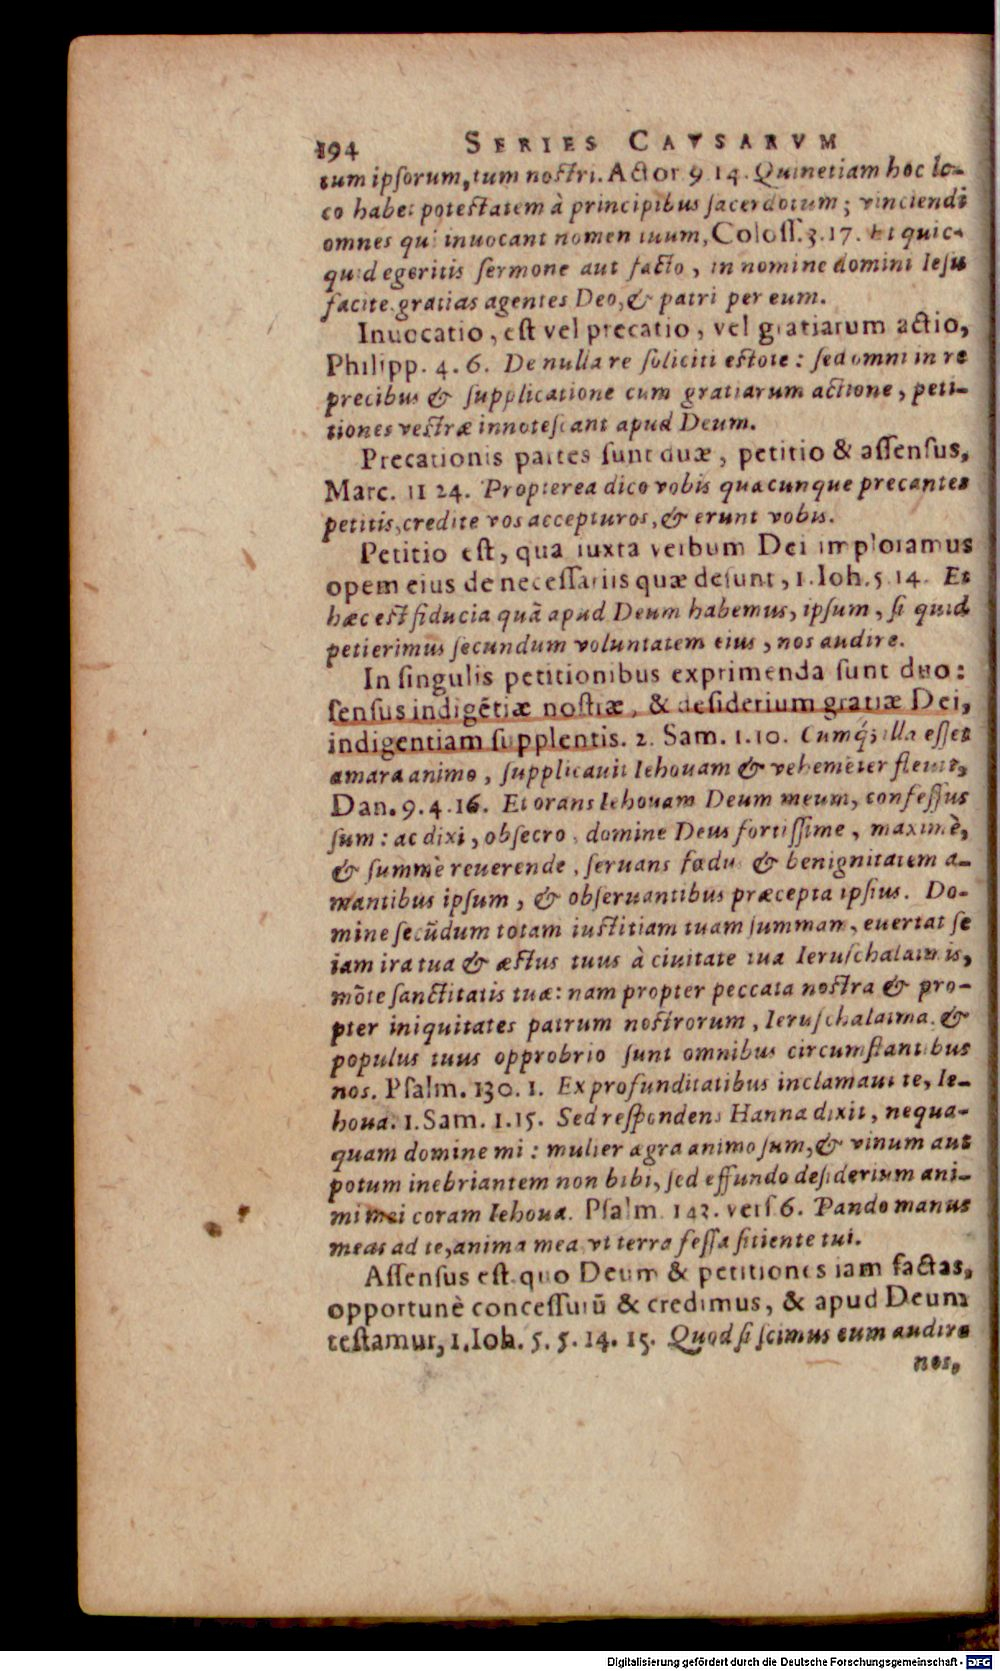 194 SERIES CAVSARVM
tum ipsorum, tum nostri. Actor 9 14. Quinetiam hoc lo-
co habet potestatem à principibus sacerdotum; vinciendi
omnes qui inuocant nomen tuum, Coloss. 3. 17. Et quic-
quid egeritis sermone aut facto, in nomine domini Iesu
facite, gratias agentes Deo, & patri per eum.
Inuocatio, est vel precatio, vel gratiarum actio,
Philipp. 4. 6. De nulla re soliciti estote: sed omni in re
precibus & supplicatione cum gratiarum actione, peti-
tiones vestræ innotescant apud Deum.
Precationis partes sunt duæ, petitio & assensus,
Marc. 11 24. Propterea dico vobis quacunque precantes
petitis, credite vos accepturos, & erunt vobis.
Petitio est, qua iuxta verbum Dei imploramus
opem eius de necessariis quæ desunt, 1. Ioh. 5. 14. Et
hæc est fiducia quā apud Deum habemus, ipsum, si quid
petierimus secundum voluntatem eius, nos audire.
In singulis petitionibus exprimenda sunt duo:
sensus indigētiæ nostræ, & desiderium gratiæ Dei,
indigentiam supplentis. 2. Sam. 1. 10. Cumq́; illa esset
amara animo, supplicauit Iehouam & vehemēter fleuit,
Dan. 9. 4. 16. Et orans Iehouam Deum meum, confessus
sum: ac dixi, obsecro, domine Deus fortissime, maximè,
& summè reuerende, seruans fœdus & benignitatem a-
mantibus ipsum, & obseruantibus præcepta ipsius. Do-
mine secūdum totam iustitiam tuam summam, euertat se
iam ira tua & æstus tuus à ciuitate tua Ieruschalaimis,
mōte sanctitatis tuæ: nam propter peccata nostra & pro-
pter iniquitates patrum nostrorum, Ieruschalaima &
populus tuus opprobrio sunt omnibus circumstantibus
nos. Psalm. 130. 1. Ex profunditatibus inclamaui te, Ie-
houa. 1. Sam. 1. 15. Sed respondens Hanna dixit, nequa-
quam domine mi: mulier ægra animo sum, & vinum aut
potum inebriantem non bibi, sed effundo desiderium ani-
mi mei coram Iehoua. Psalm. 143. vers 6. Pando manus
meas ad te, anima mea vt terra fessa sitiente tui.
Assensus est quo Deum & petitiones iam factas,
opportunè concessurū & credimus, & apud Deum
testamur, 1. Ioh. 5. 5. 14. 15. Quod si scimus eum audire
nos,
Digitalisierung gefördert durch die Deutsche Forschungsgemeinschaft - DFG